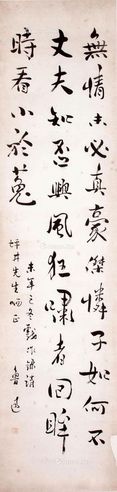 無情未必真豪傑憐子如何不
丈夫知否興風狂嘯者回眸
時看小於菟
未年之冬戲作錄請
坪井先生哂正
魯迅